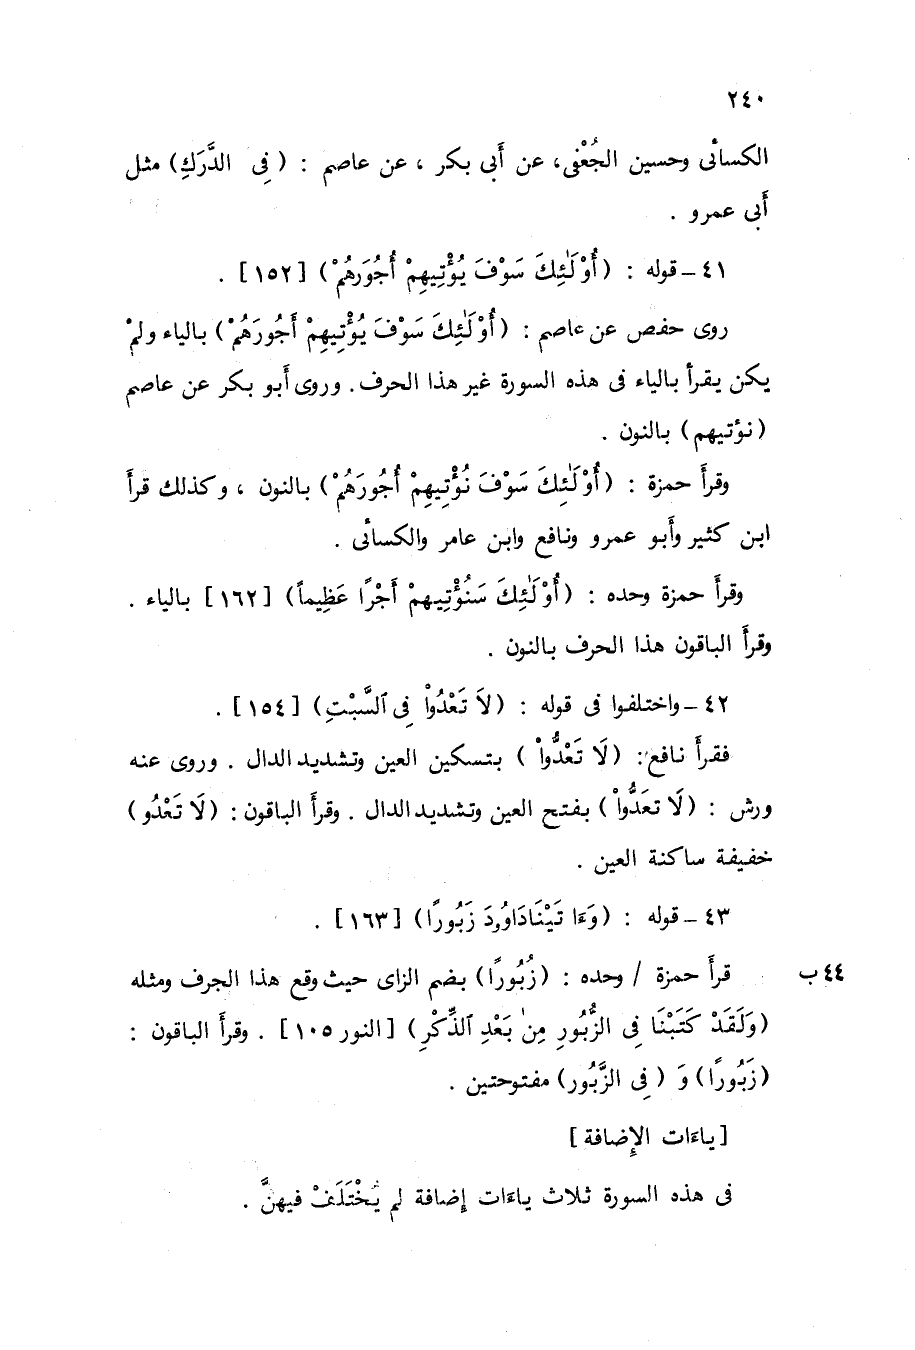 ٢٤٠
الكسائى وحسين الجُعْفى، عن أَبى بكر ، عن عاصم : ( فِى الدَّرَكِ) مثل
أَبى عمرو .
٤١ – قوله : (أُوْلَٰئِكَ سَوْفَ يُؤْتِيهِمْ أُجُورَهُمْ) [١٥٢] .
روى حفص عن عاصم : (أُوْلَٰئِكَ سَوْفَ يُؤْتِيهِمْ أُجُورَهُمْ) بالياء ولمْ
يكن يقرأ بالياء فى هذه السورة غير هذا الحرف. وروى أَبو بكر عن عاصم
(نؤتيهم) بالنون .
وقرأَ حمزة : (أُوْلَٰئِكَ سَوْفَ نُؤْتِيهِمْ أُجُورَهُمْ) بالنون ، وكذلك قرأَ
ابن كثير وأَبو عمرو ونافع وابن عامر والكسائى .
وقرأَ حمزة وحده : (أُوْلَٰئِكَ سَنُؤْتِيهمْ أَجْرًا عَظِيماً) [١٦٢] بالياء .
وقرأَ الباقون هذا الحرف بالنون .
٤٢ – واختلفوا فى قوله : (لاَ تَعْدُواْ فِى ٱلسَّبْتِ) [١٥٤] .
فقرأَ نافع: (لَا تَعْدُّواْ ) بتسكين العين وتشديد الدال . وروى عنه
ورش : (لَا تعَدُّواْ ) بفتح العين وتشديد الدال . وقرأَ الباقون : (لَا تَعْدُو )
خفيفة ساكنة العين .
٤٣ – قوله : (وَءَا تَيْنَادَاوُودَ زَبُورًا) [١٦٣] .
قرأَ حمزة / وحده : (زُبُورًا) بضم الزاى حيث وقع هذا الحرف ومثله ٤٤ ب
(وَلَقَدْ كَتَبْنَا فِى الزُّبُورِ مِنۢ بَعْدِ ٱلذِّكْرِ ) [النور ١٠٥] . وقرأَ الباقون :
(زَبُورًا) وَ ( فِى الزَّبُور) مفتوحتين .
[ ياءَات الإِضافة ]
فى هذه السورة ثلاث ياءَات إِضافة لم يُخْتَلَفْ فيهنَّ .